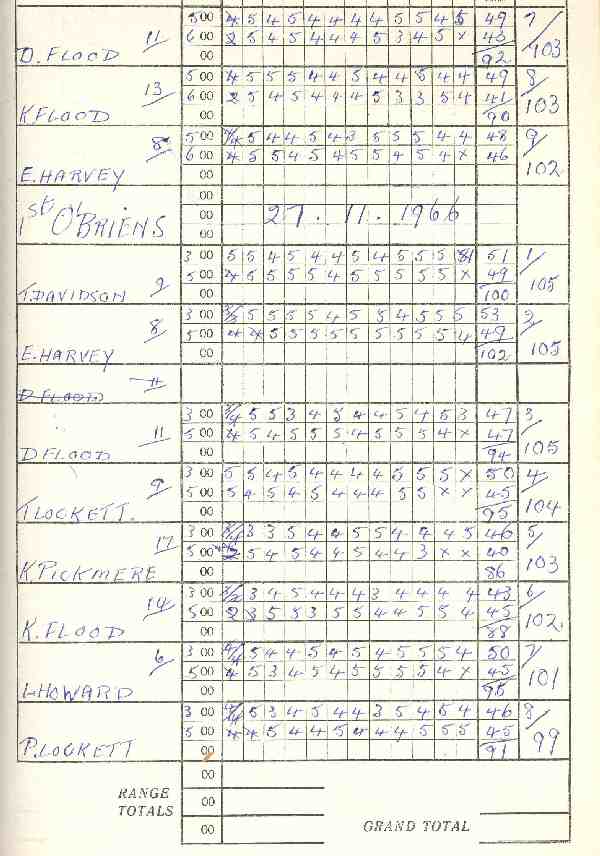 500 4 5 4 5 4 4 4 4 5 5 4 5 49 7/
D. FLOOD 11/ 600 2 5 4 5 4 4 4 5 3 4 5 x 43 103
00 92
500 4 5 5 5 4 4 5 4 4 5 4 4 49 8/
K FLOOD 13/ 600 2 5 4 5 4 4 4 5 3 3 5 4 41 103
00 90
500 5 4 4 5 4 3 5 5 5 4 4 48 9/
E. HARVEY 8/ 600 4 5 5 4 5 4 5 5 4 5 4 x 46 102
00
00
1st O'BRIENS 00 27.11.1966
00
300 5 5 4 5 4 4 5 4 5 5 5 51 1/
T. DAVIDSON 9/ 500 4 5 5 5 5 4 5 5 5 5 5 x 49 105
00 100
300 5 5 5 5 4 5 5 4 5 5 5 53 2/
E. HARVEY 8/ 500 4 4 5 5 5 5 5 5 5 5 5 4 49 105
00 102
D FLOOD 11
300 5 5 3 4 5 4 4 5 4 5 3 47 3/
D FLOOD 11/ 500 4 5 4 5 5 5 4 5 5 5 4 x 47 105
00 94
300 5 5 4 5 4 4 4 4 5 5 5 x 50 4/
T LOCKETT. 9/ 500 5 4 5 4 5 4 4 4 5 5 x x 45 104
00 95
300 3 3 5 4 4 5 5 4 4 4 5 46 5/
K PICKMERE 17/ 500 5 4 5 4 4 5 4 4 3 x x 40 103
00 86
300 3 4 5 4 4 4 3 4 4 4 4 43 6/
K. FLOOD 14/ 500 2 3 5 5 3 5 5 4 4 5 5 4 45 102
00 88
300 5 4 4 5 4 5 4 5 5 5 4 50 7/
L HOWARD 6/ 500 4 5 3 4 5 4 5 5 5 5 4 x 45 101
00 95
300 5 3 4 5 4 4 3 5 4 5 4 46 8/
P. LOCKETT 500 4 4 5 4 4 5 4 4 4 5 5 5 45 99
00 91
00
RANGE TOTALS 00
00 GRAND TOTAL